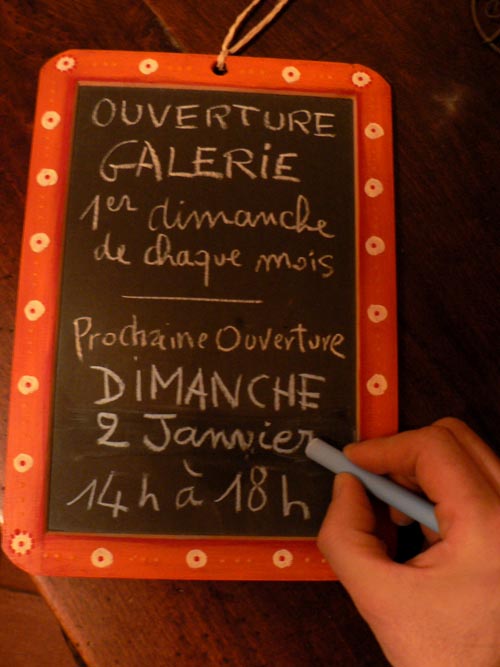 OUVERTURE
GALERiE
1er dimanche
de chaque mois
Prochaine Ouverture
DiMANCHE
2 Janvier
14h à 18h